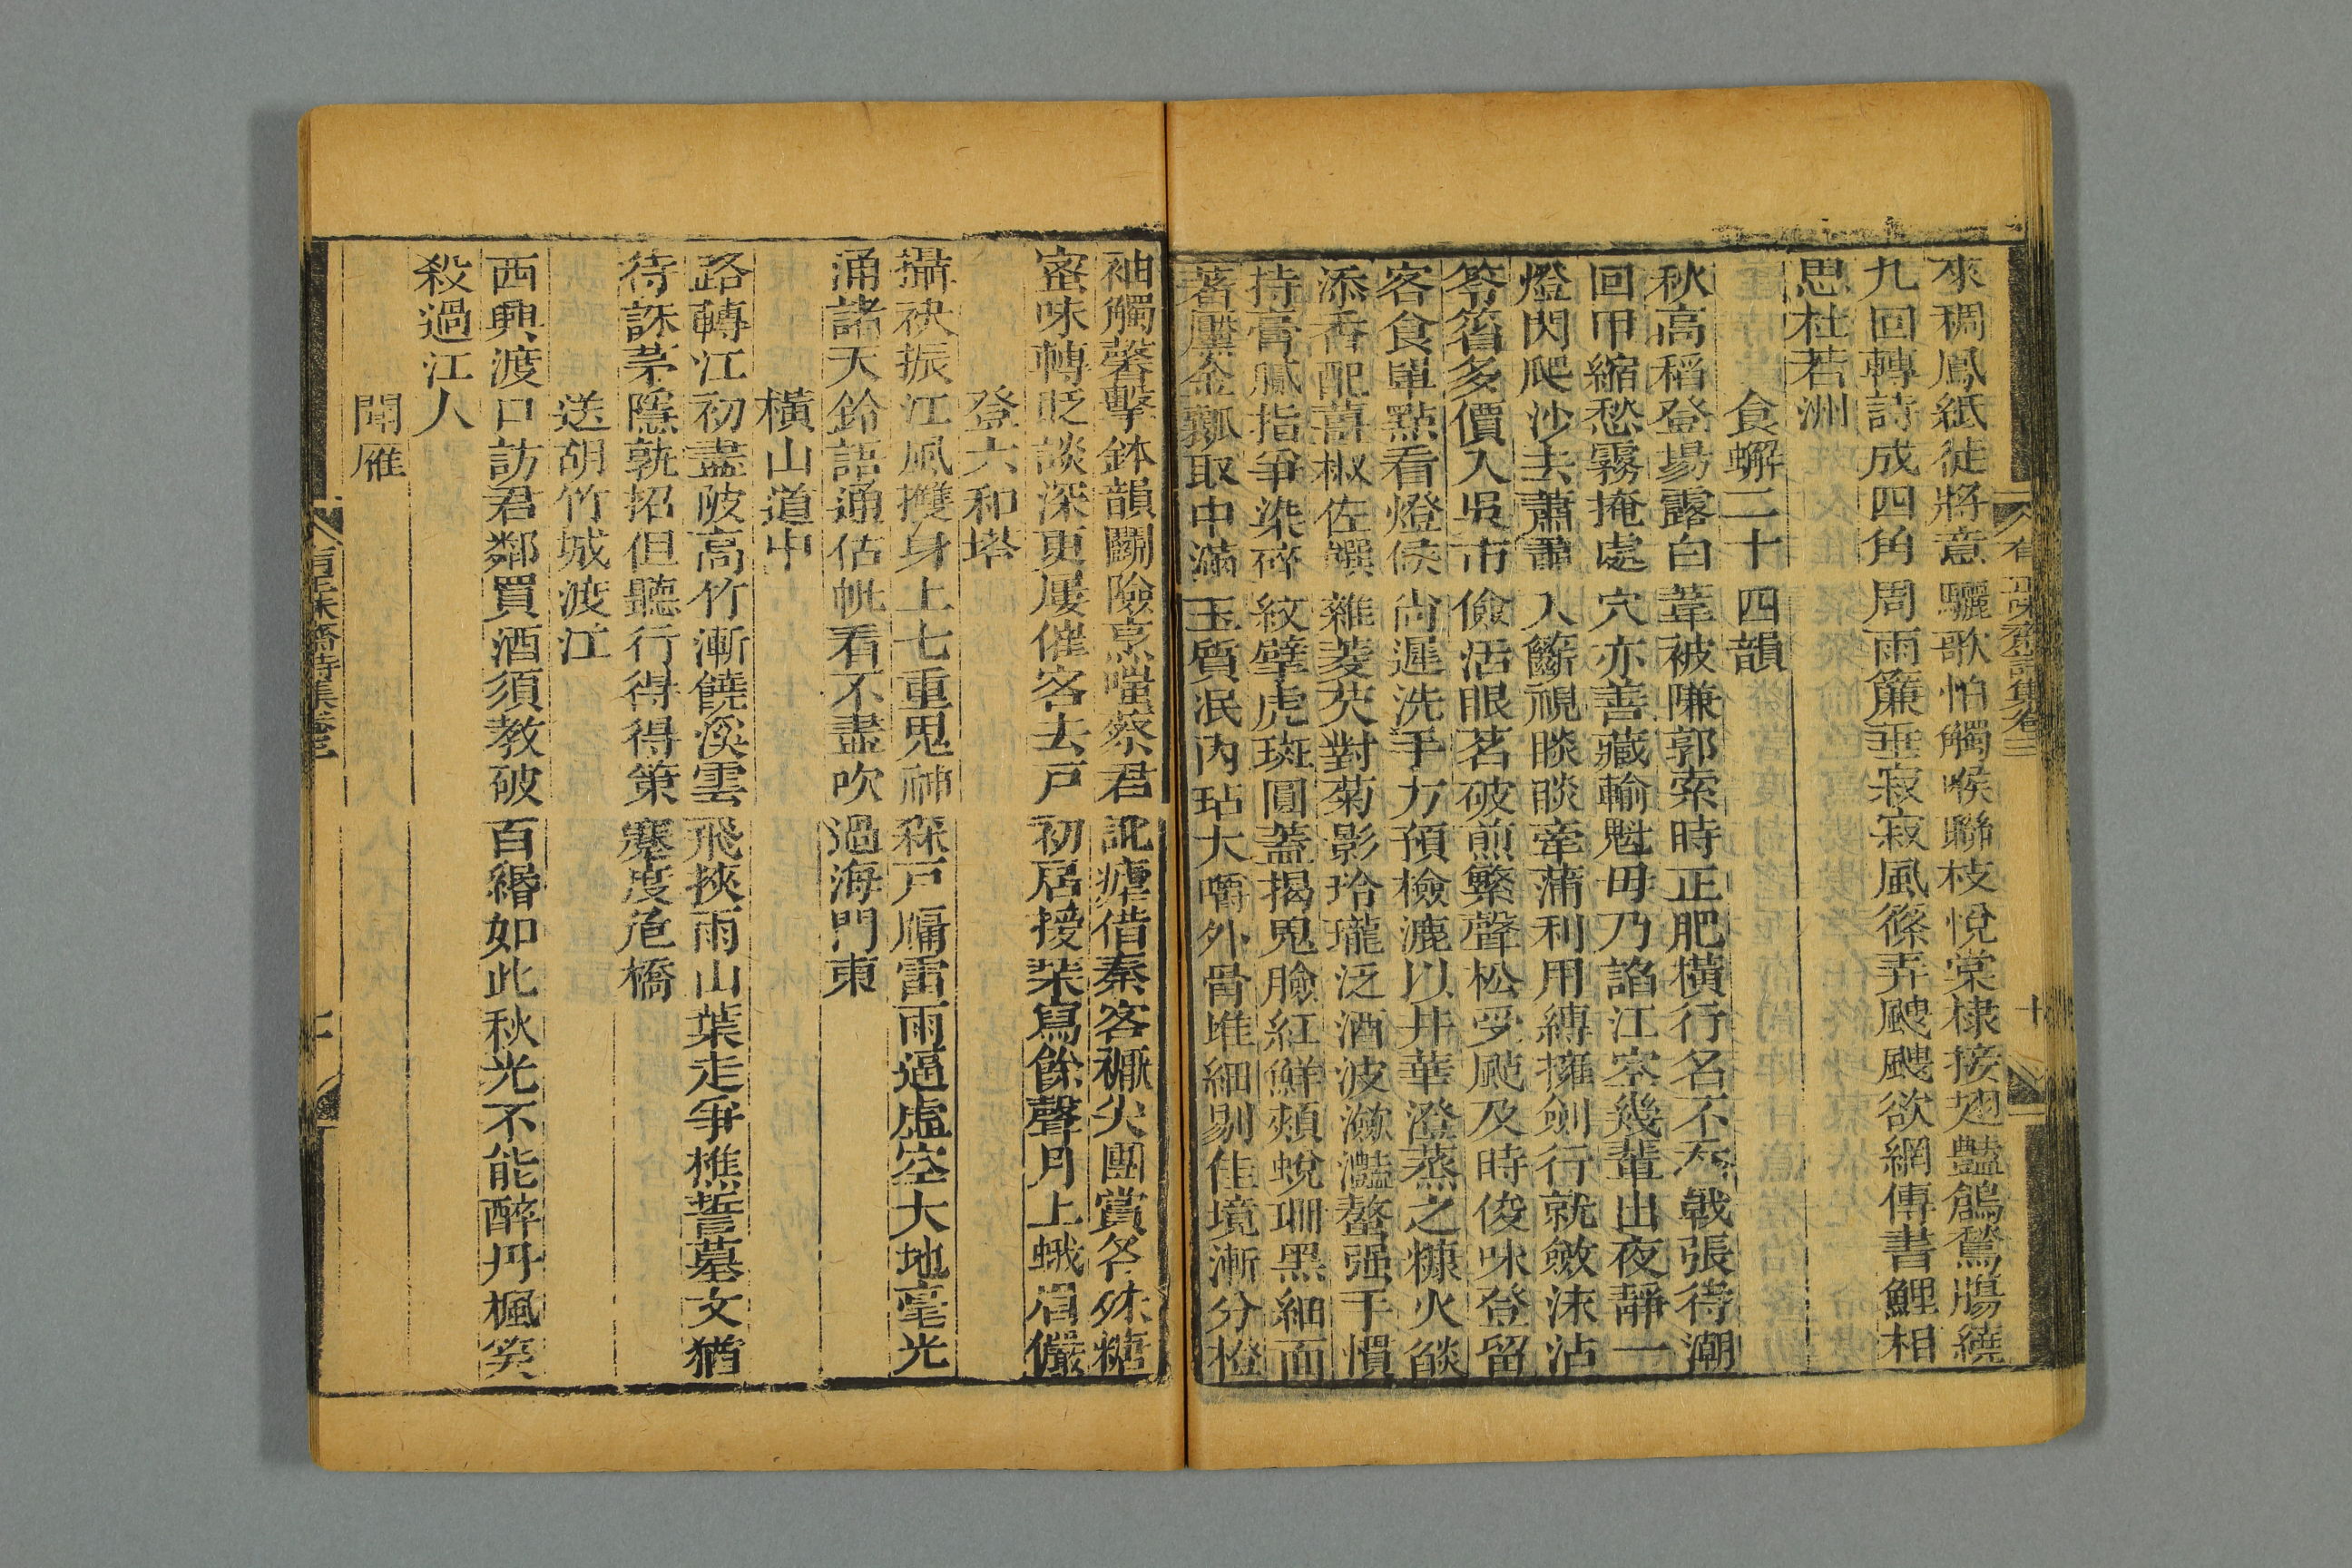 來稠鳳紙徒將意驪歌怕觸喉聯枝悅棠棣接翅豔鶺鴒腸繞
九回轉詩成四角周雨簾垂寂寂風篠弄颼颼欲網傳書鯉相
思杜若洲
食蠏二十四韻
秋高稻登場露白葦被隒郭索時正肥橫行名不忝戟張待潮
回甲縮愁霧掩處穴亦善藏輸魁毋乃諂江空幾輩出夜靜一
燈閃爬沙去蕭蕭入籪視睒睒牽蒲利用縛擁劍行就斂沫沾
笭箵多價入吳市儉活眼茗破煎繁聲松受颭及時俊味登留
客食單點看燈候尚遲洗手方預檢漉以井華澄蒸之糠火燄
添香配薑椒佐饌雜菱芡對菊影玲瓏泛酒波瀲灩螯强手慣
持膏膩指爭染碎紋擘虎斑圓蓋揭鬼臉紅鮮頰蛻珊黑細面
著黶金瓤取中滿玉質泯內玷大嚼外骨堆細剔佳境漸分橙
袖觸馨擊鉢韻鬬險烹嗤蔡君訛瘧借秦客禳尖團賞各殊糖
蜜味轉貶談深更屢催客去戶初居援栄寫餘聲月上蛾眉儼
登六和塔
攝袂振江風㩳身上七重鬼神森戶牖雷雨逼虛空大地毫光
涌諸天鈴語通估帆看不盡吹過海門東
橫山道中
路轉江初盡陂高竹漸饒溪雲飛挾雨山葉走爭樵誓墓文猶
待誅茅隱孰招但聽行得得策蹇度危橋
送胡竹城渡江
西興渡口訪君鄰買酒須敎破百緡如此秋光不能醉丹楓笑
殺過江人
聞雁
有正味齋詩集卷三
十
有正味齋詩集卷三